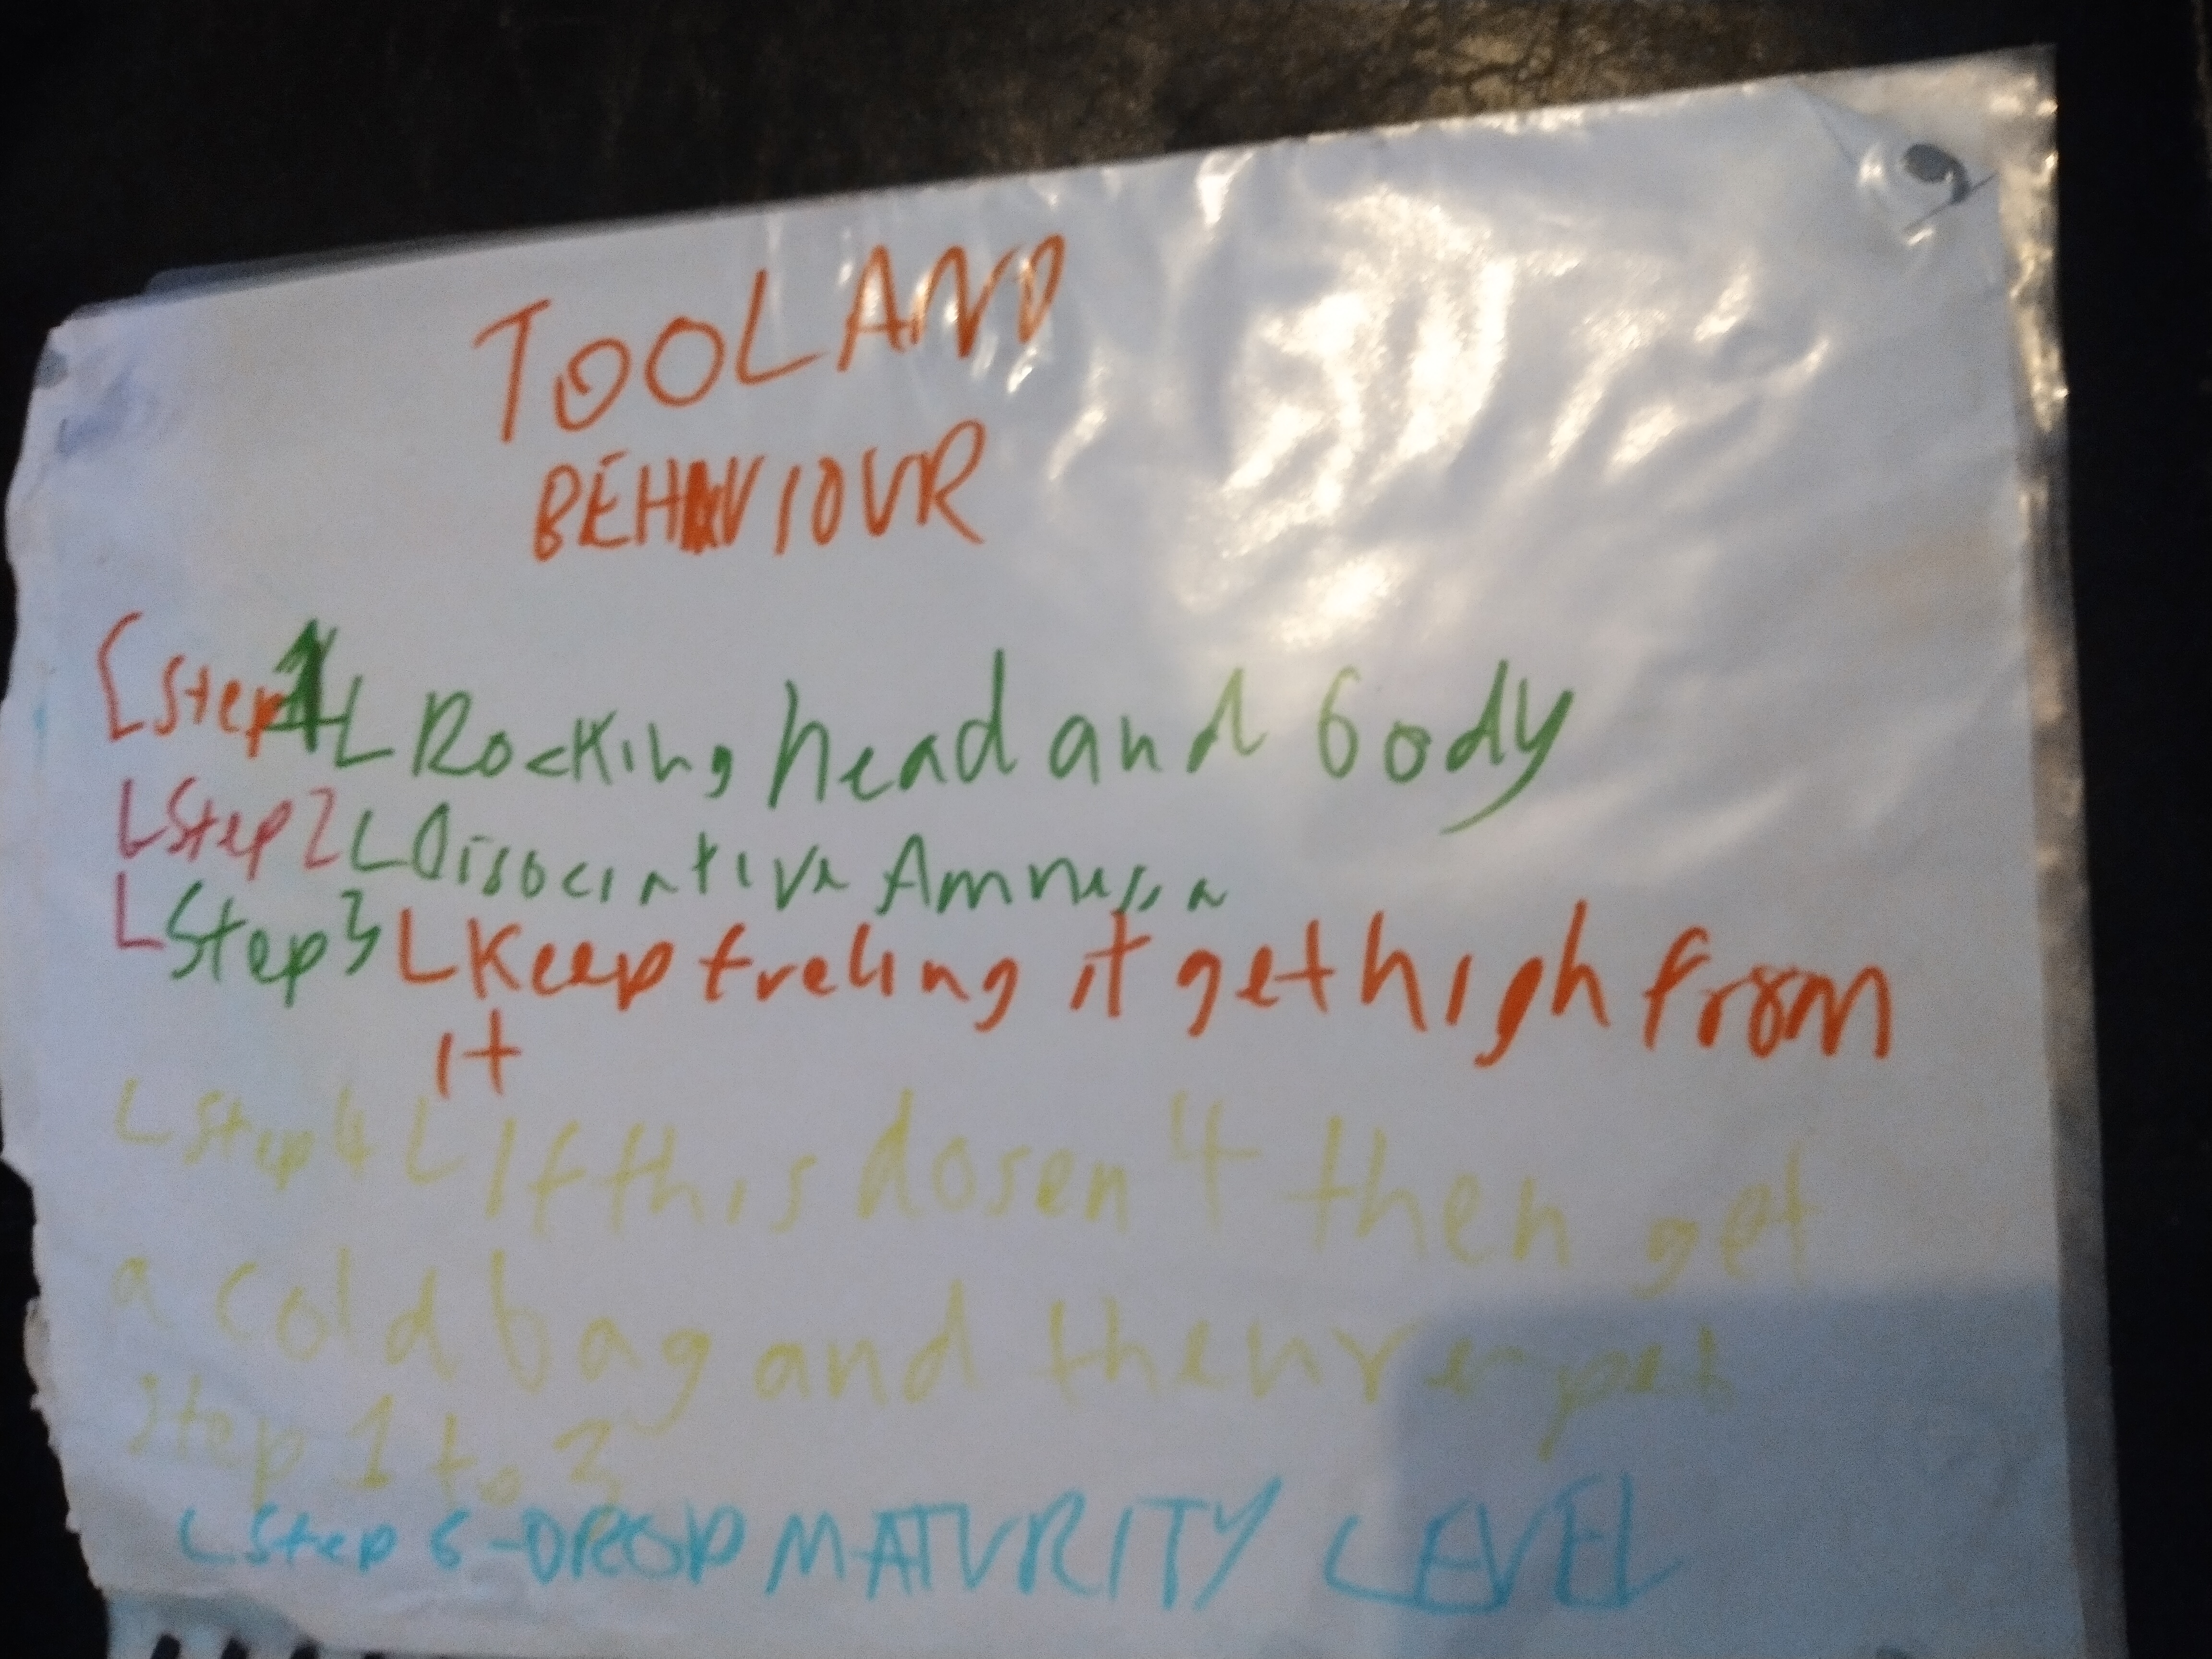 TOOL AND
BEHAVIOUR
[Step 1 L Rocking head and body
L Step 2 L Disociative Amnesia
L Step 3 L Keep freling it get high from
it
L Step 4 L If this dosen4 then get
a cold bag and then repet
Step 1 to 3
L Step 6 - DROP MATURITY LEVEL